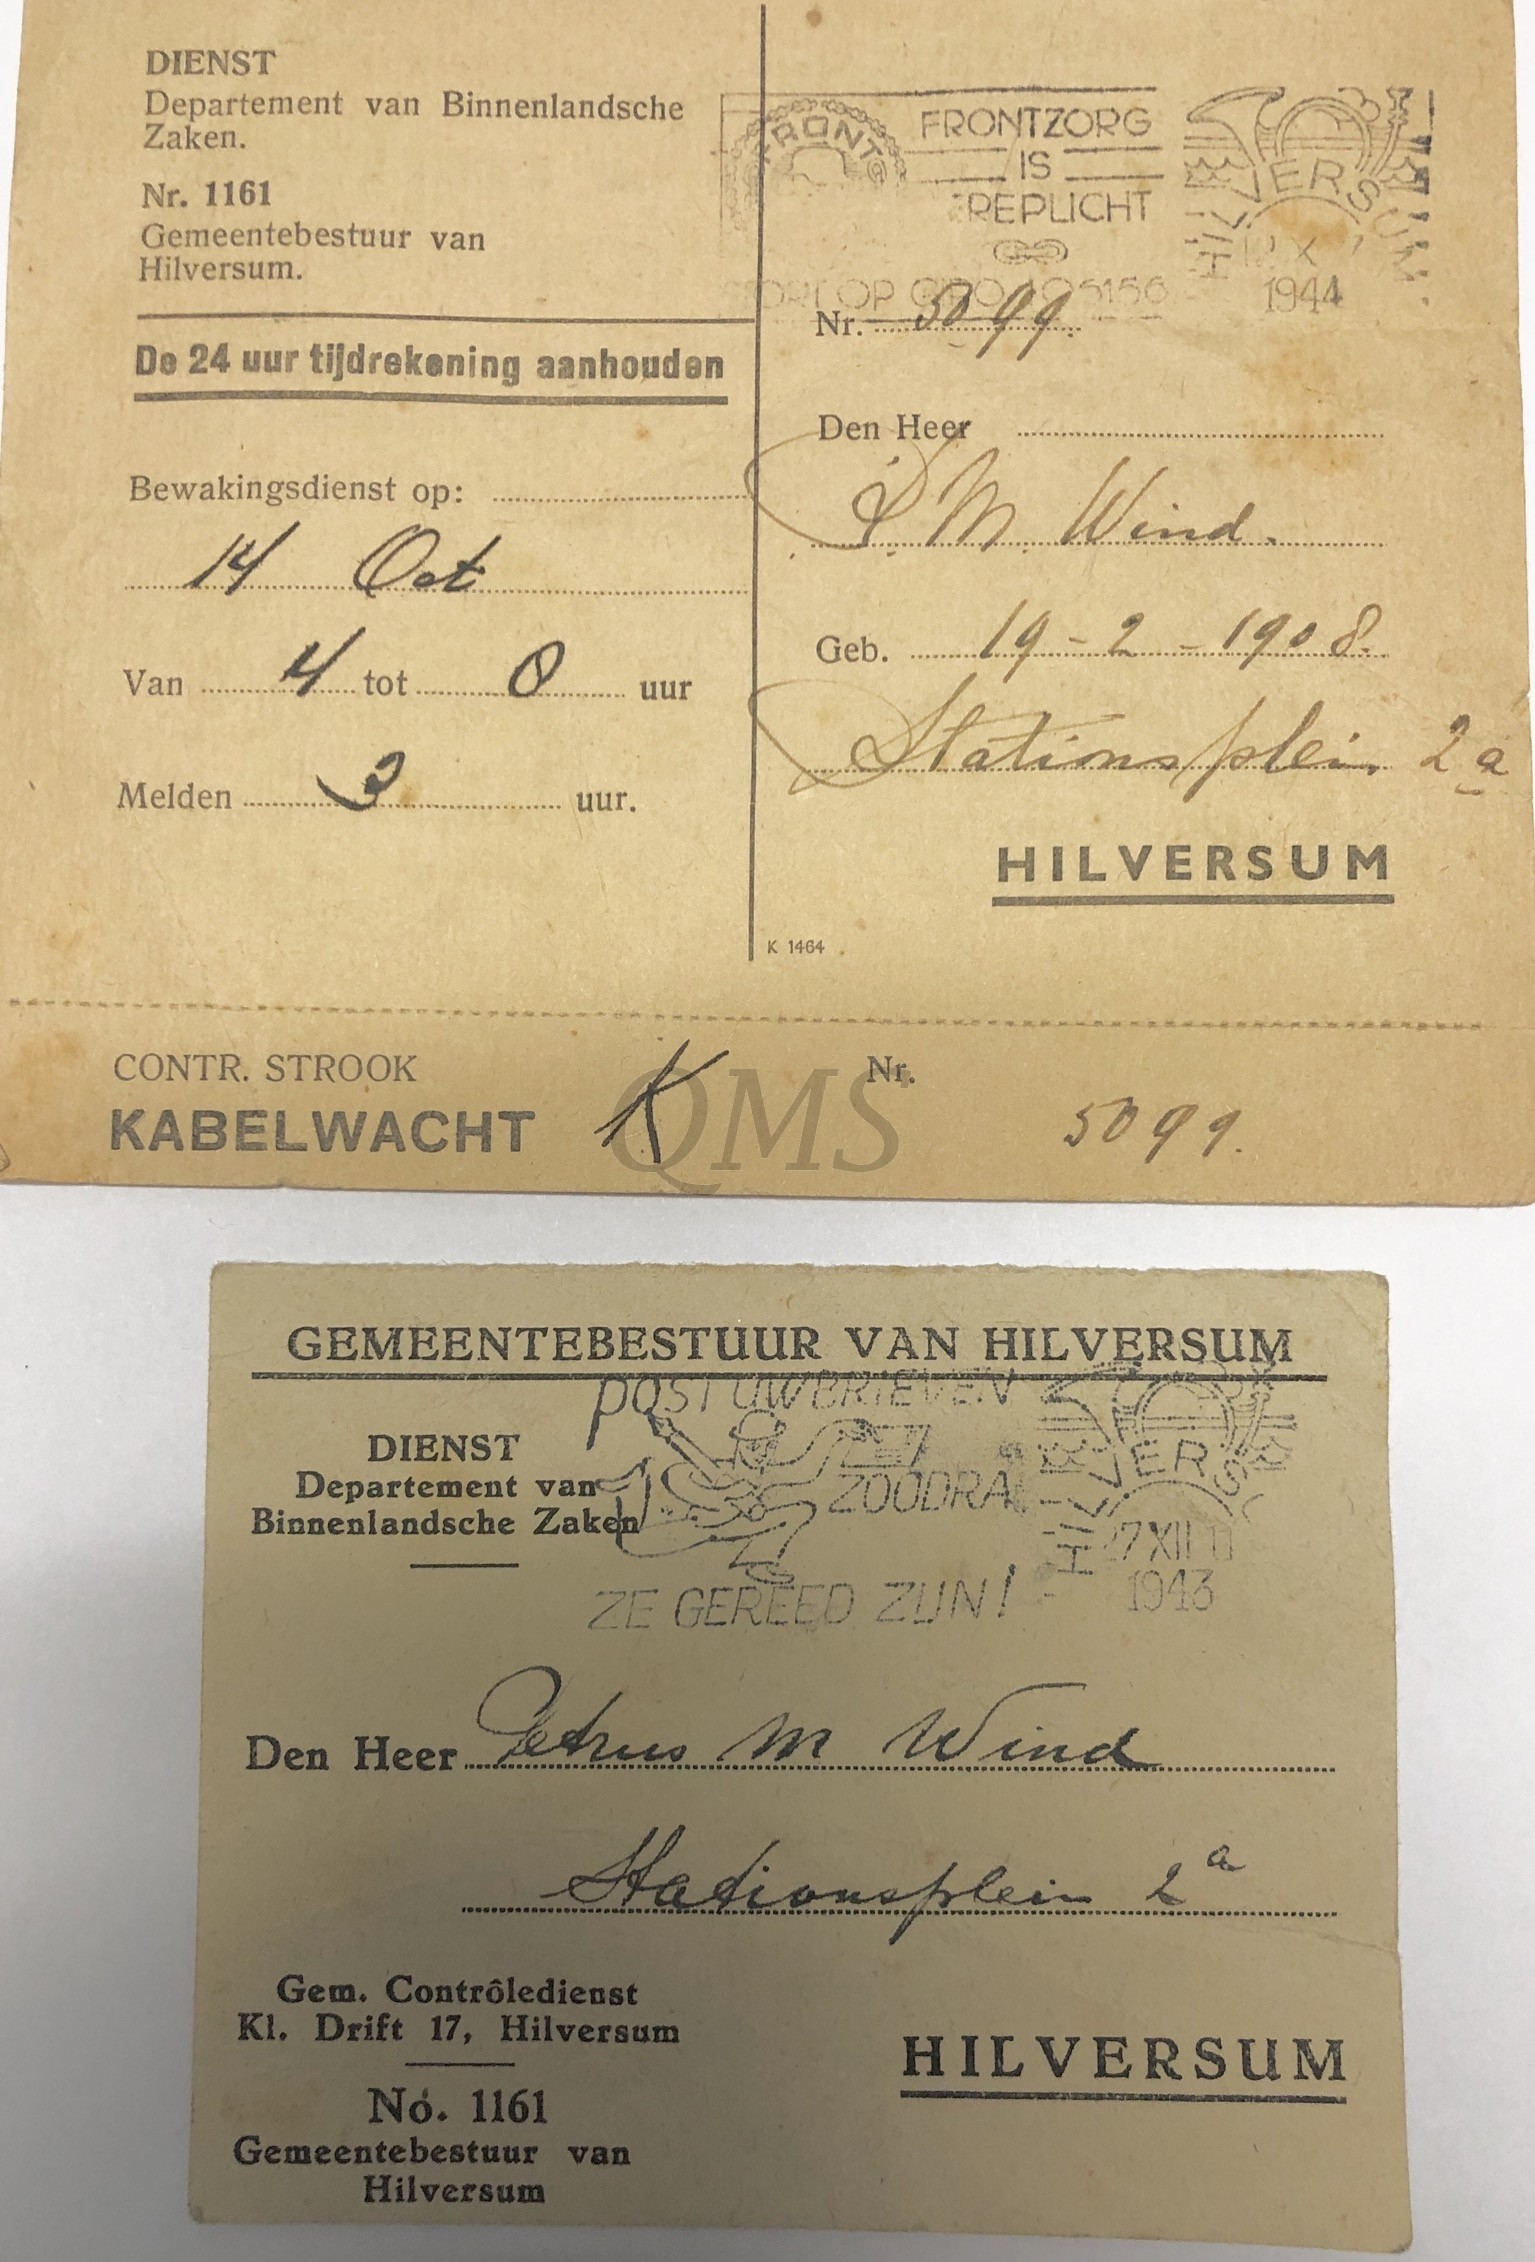 DIENST
Departement van Binnenlandsche
Zaken.
Nr. 1161
Gemeentebestuur van
Hilversum.
De 24 uur tijdrekening aanhouden
Bewakingsdienst op:
14 Oct
Van 4 tot 8 uur
Melden 3 uur.
FRONT
FRONTZORG
IS
EREPLICHT
OP GIRO
HILVERSUM
X
1944
Nr. 5099.
Den Heer
P. M. Wind.
Geb. 19-2-1908.
Stationsplein 2a
HILVERSUM
K 1464
CONTR. STROOK
KABELWACHT K
Nr.
5099.
QMS
GEMEENTEBESTUUR VAN HILVERSUM
POST UW BRIEVEN
ZOODRA
ZE GEREED ZIJN!
HILVERSUM
27 XII
1943
DIENST
Departement van
Binnenlandsche Zaken
Den Heer Petrus M Wind
Stationsplein 2a
Gem. Contrôledienst
Kl. Drift 17, Hilversum
No. 1161
Gemeentebestuur van
Hilversum
HILVERSUM